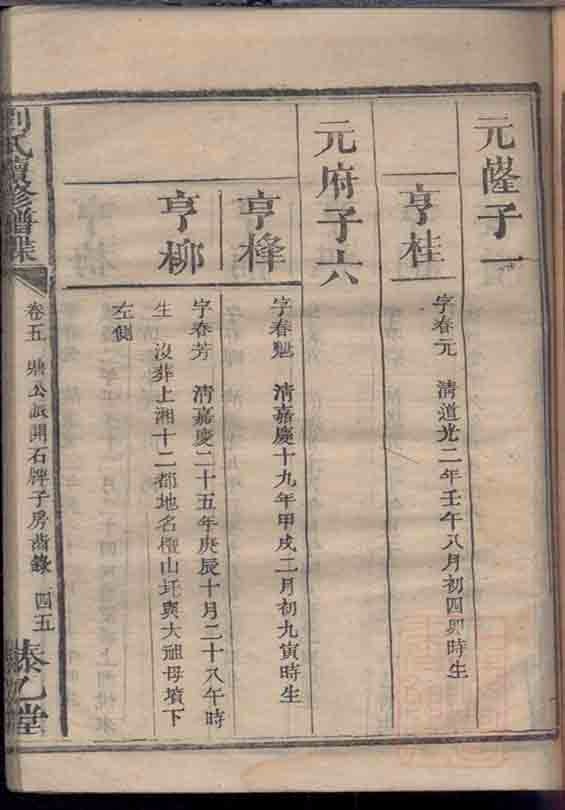 元隆子一
亨桂
字春元 清道光二年壬午八月初四卯時生
元府子六
亨椲
字春魁 清嘉慶十九年甲戌二月初九寅時生
亨柳
字春芳 清嘉慶二十五年庚辰十月二十八午時
生 沒葬上湘十二都地名檀山圫與大祖母墳下
左側
劉氏續修譜牒
卷五 鼎公派開石牌子房齒錄 四五
藜乙堂